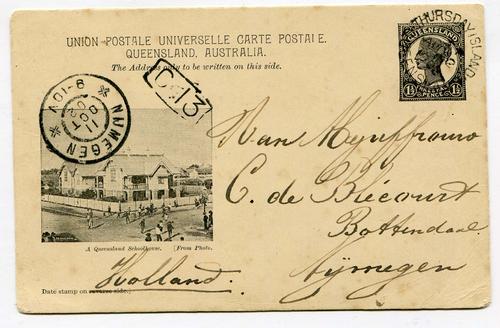 UNION POSTALE UNIVERSELLE CARTE POSTALE.
QUEENSLAND, AUSTRALIA.
The Address only to be written on this side.
THURSDAY ISLAND
QUEENSLAND
1½ PENCE 1½
C.13
NIJMEGEN
11 OCT
9-10V
Aan Mejuffrouw
C. de Blécourt
Bottendaal
Nijmegen
Holland.
A Queensland Schoolhouse. [From Photo.
Date stamp on reverse side.]